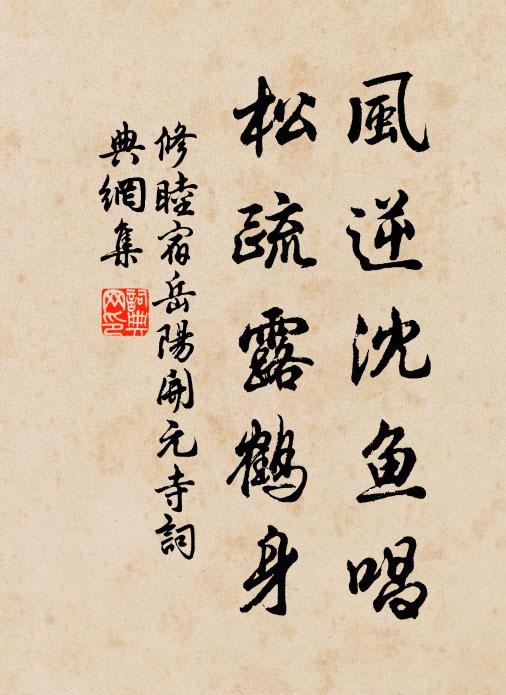 風逆沈魚唱
松疏露鶴身
修睦宿岳陽開元寺詞
典網集
詞典網印